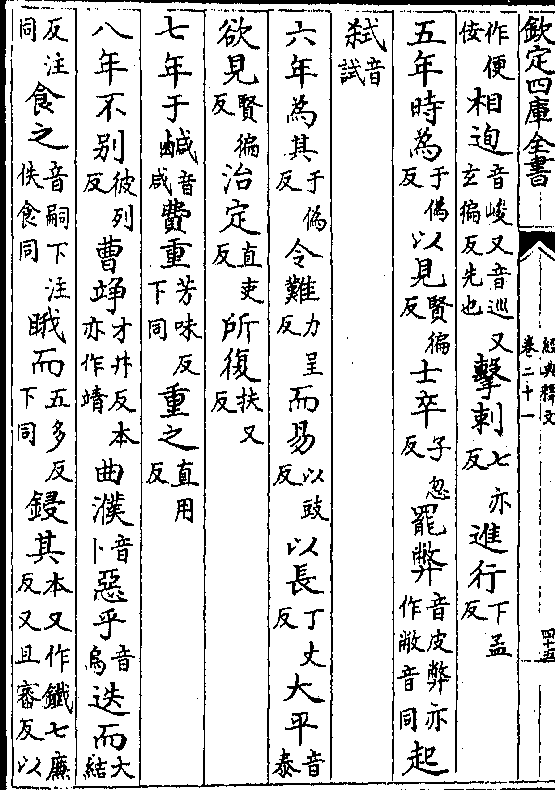 欽定四庫全書
經典釋文
卷二十一
四十五
作便佞相迿音峻又音巡又玄徧反先也擊刺七亦反進行下孟反
五年時為于偽反以見賢徧反士卒子忽反罷弊音皮弊亦作敝音同起
弑音試
六年為其于偽反令難力呈反而易以豉反以長丁丈反大平音泰
欲見賢徧反治定直吏反所復扶又反
七年于鹹音咸費重芳味反下同重之直用反
八年不别彼列反曹竫才井反本亦作靖曲濮音卜惡乎音烏迭而大結
反注同食之音嗣下注佚食同睋而五多反下同鋟其本又作鑯七廉反又且審反以